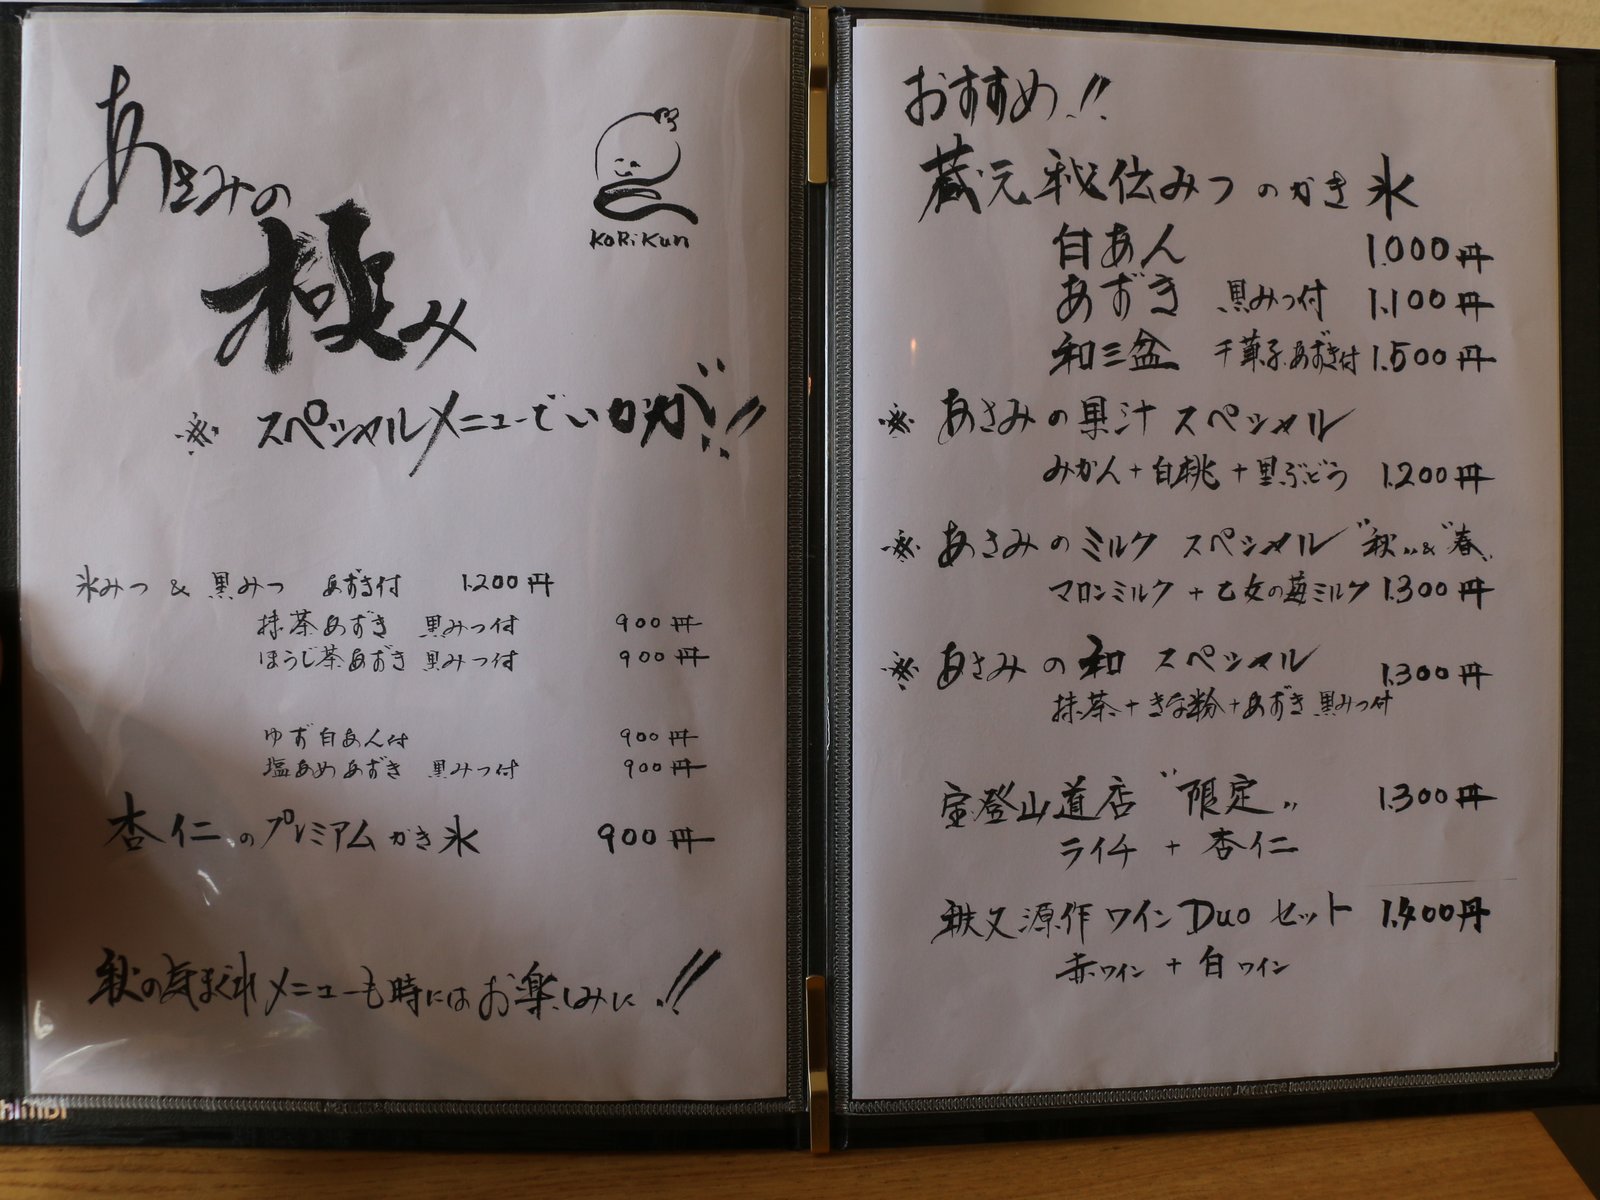 あさみの
極み
KoRiKun
※ スペシャルメニューでいかが!!
氷みつ & 黒みつ あずき付 1.200円
抹茶あずき 黒みつ付 900円
ほうじ茶あずき 黒みつ付 900円
ゆず白あん付 900円
塩あめあずき 黒みつ付 900円
杏仁のプレミアムかき氷 900円
秋の気まぐれメニューも時にはお楽しみに!!
おすすめ!!
蔵元秘伝みつのかき氷
白あん 1.000円
あずき 黒みつ付 1.100円
和三盆 干菓子あずき付 1.500円
※ あさみの果汁スペシャル
みかん+白桃+黒ぶどう 1.200円
※ あさみのミルク スペシャル "秋"&"春"
マロンミルク + 乙女の苺ミルク 1.300円
※ あさみの和 スペシャル 1.300円
抹茶+きな粉+あずき 黒みつ付
宝登山道店 "限定" 1.300円
ライチ + 杏仁
秩父源作ワイン Duo セット 1.400円
赤ワイン + 白ワイン